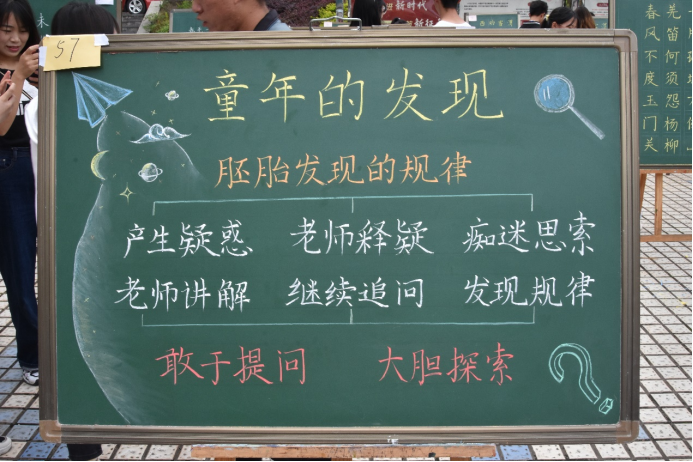 57
新时代
童年的发现
胚胎发现的规律
产生疑惑 老师释疑 痴迷思索
老师讲解 继续追问 发现规律
敢于提问 大胆探索
?
春风不度玉门关
羌笛何须怨杨柳